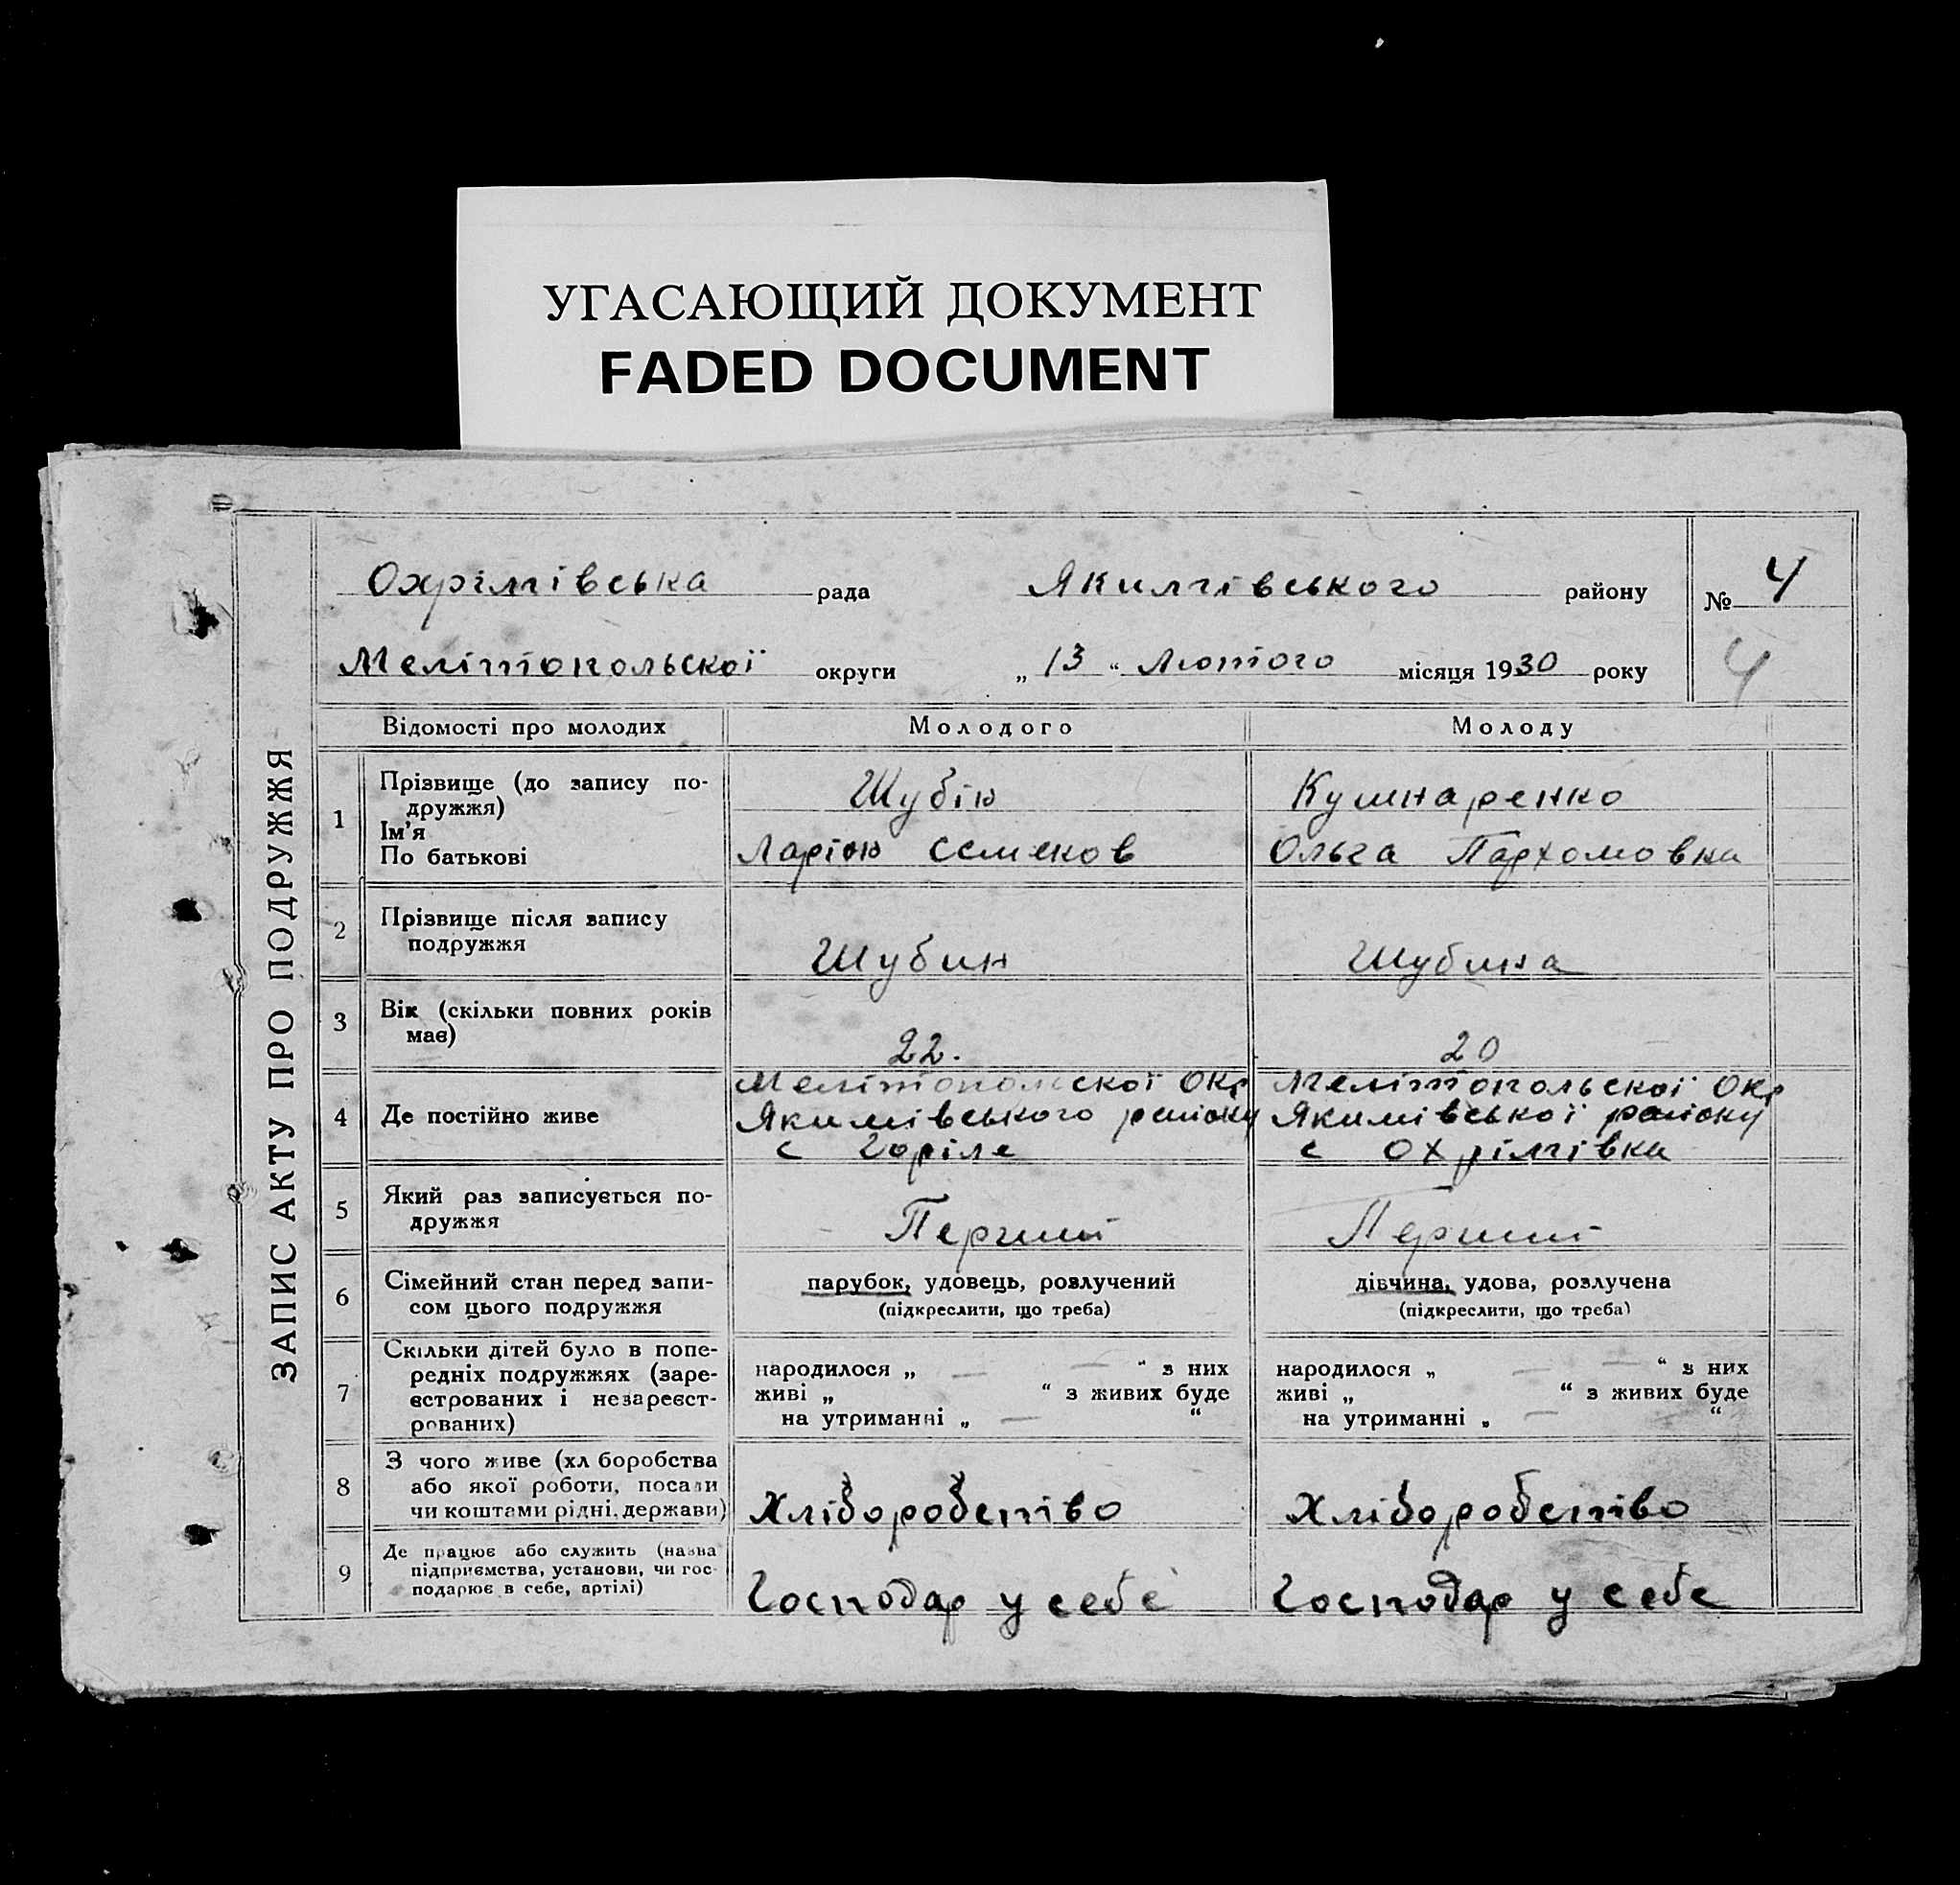 УГАСАЮЩИЙ ДОКУМЕНТ
FADED DOCUMENT
ЗАПИС АКТУ ПРО ПОДРУЖЖЯ
Охрімівська рада Якимівського району № 4
Мелітопольскої округи „ 13 “ Лютого місяця 1930 року 4
Відомості про молодих Молодого Молоду
1 Прізвище (до запису по-
дружжя) Шубін Кушнаренко
Ім'я
По батькові Ларіон Семенов Ольга Пархомовна
2 Прізвище після запису
подружжя Шубин Шубина
3 Вік (скільки повних років
має) 22. 20
4 Де постійно живе
Мелітопольскої Окр
Якимівського району
с Горіле
Мелітопольскої Окр
Якимівської району
с Охрімівка
5 Який раз записується по-
дружжя Перший Перший
6 Сімейний стан перед запи-
сом цього подружжя
парубок, удовець, розлучений
(підкреслити, що треба)
дівчина, удова, розлучена
(підкреслити, що треба)
7 Скільки дітей було в попе-
редніх подружжях (заре-
єстрованих і незареєст-
рованих)
народилося „ — — “ з них
живі „ “ з живих буде
на утриманні „ — “
народилося „ — — “ з них
живі „ “ з живих буде
на утриманні „ — “
8 З чого живе (хл боробства
або якої роботи, посади
чи коштами рідні, держави) Хліборобство Хліборобство
9 Де працює або служить (назва
підприємства, установи, чи гос-
подарює в себе, артілі) Господар у себе Господар у себе